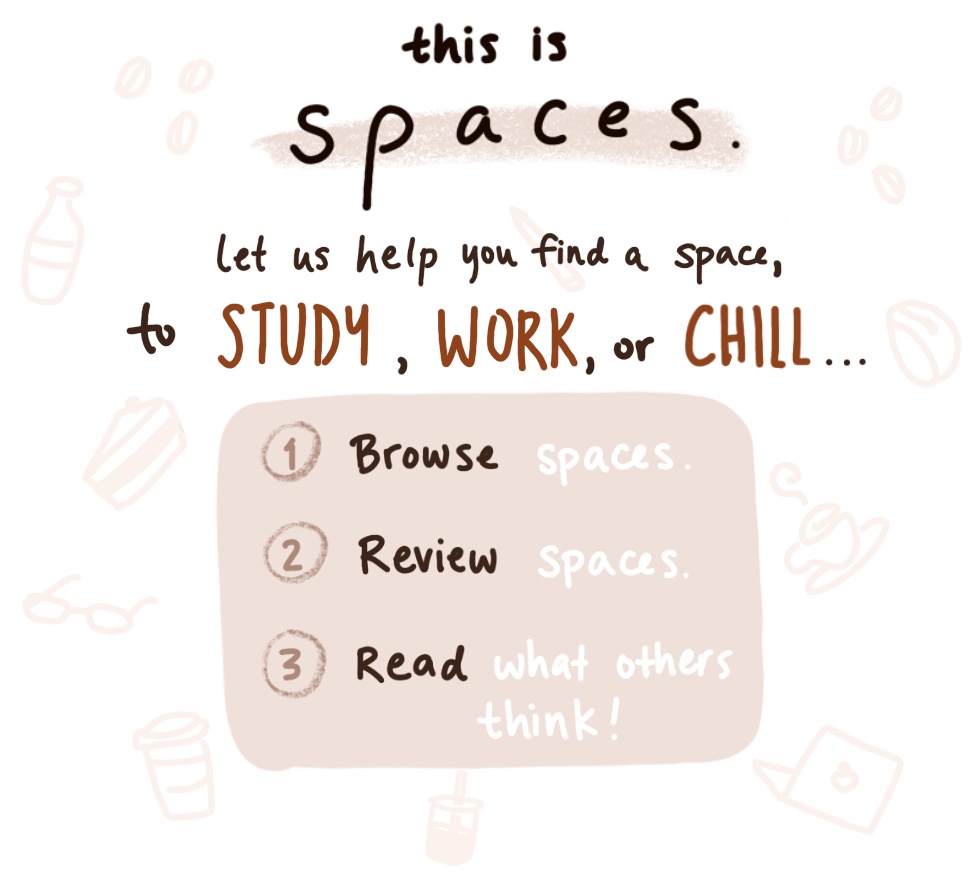 this is
spaces.
let us help you find a space,
to STUDY, WORK, or CHILL...
1 Browse spaces.
2 Review spaces.
3 Read what others
think!